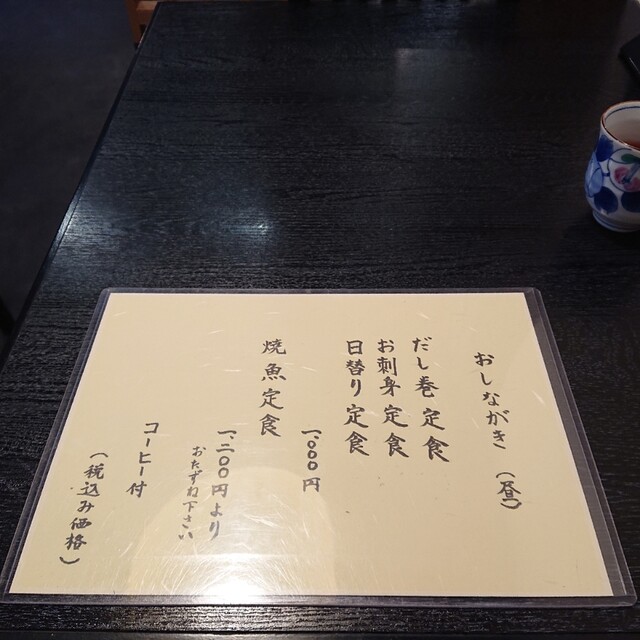 おしながき（昼）
だし巻定食
お刺身定食
日替り定食
一、000円
焼魚定食
一、二00円より
おたずね下さい
コーヒー付
（税込み価格）